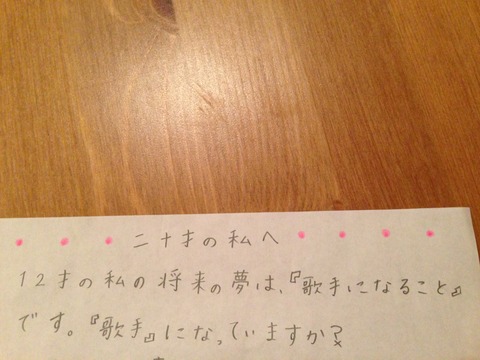 二十才の私へ
12才の私の将来の夢は、『歌手になること』
です。『歌手』になっていますか?